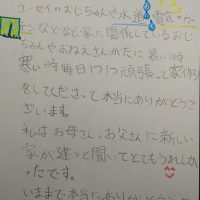 ユーセイのおじちゃんや水道、電気、カー
テンなどなど家に関係しているおじ
ちゃんやおねえさんがたに暑い時
寒い時毎日1つ1つ頑張って家作り
をしてくださって本当にありがとうご
ざいます。
私は、お母さん、お父さんに新しい
家が建つと聞いてとてもうれしか
ったです。
いままで本当にありがとう